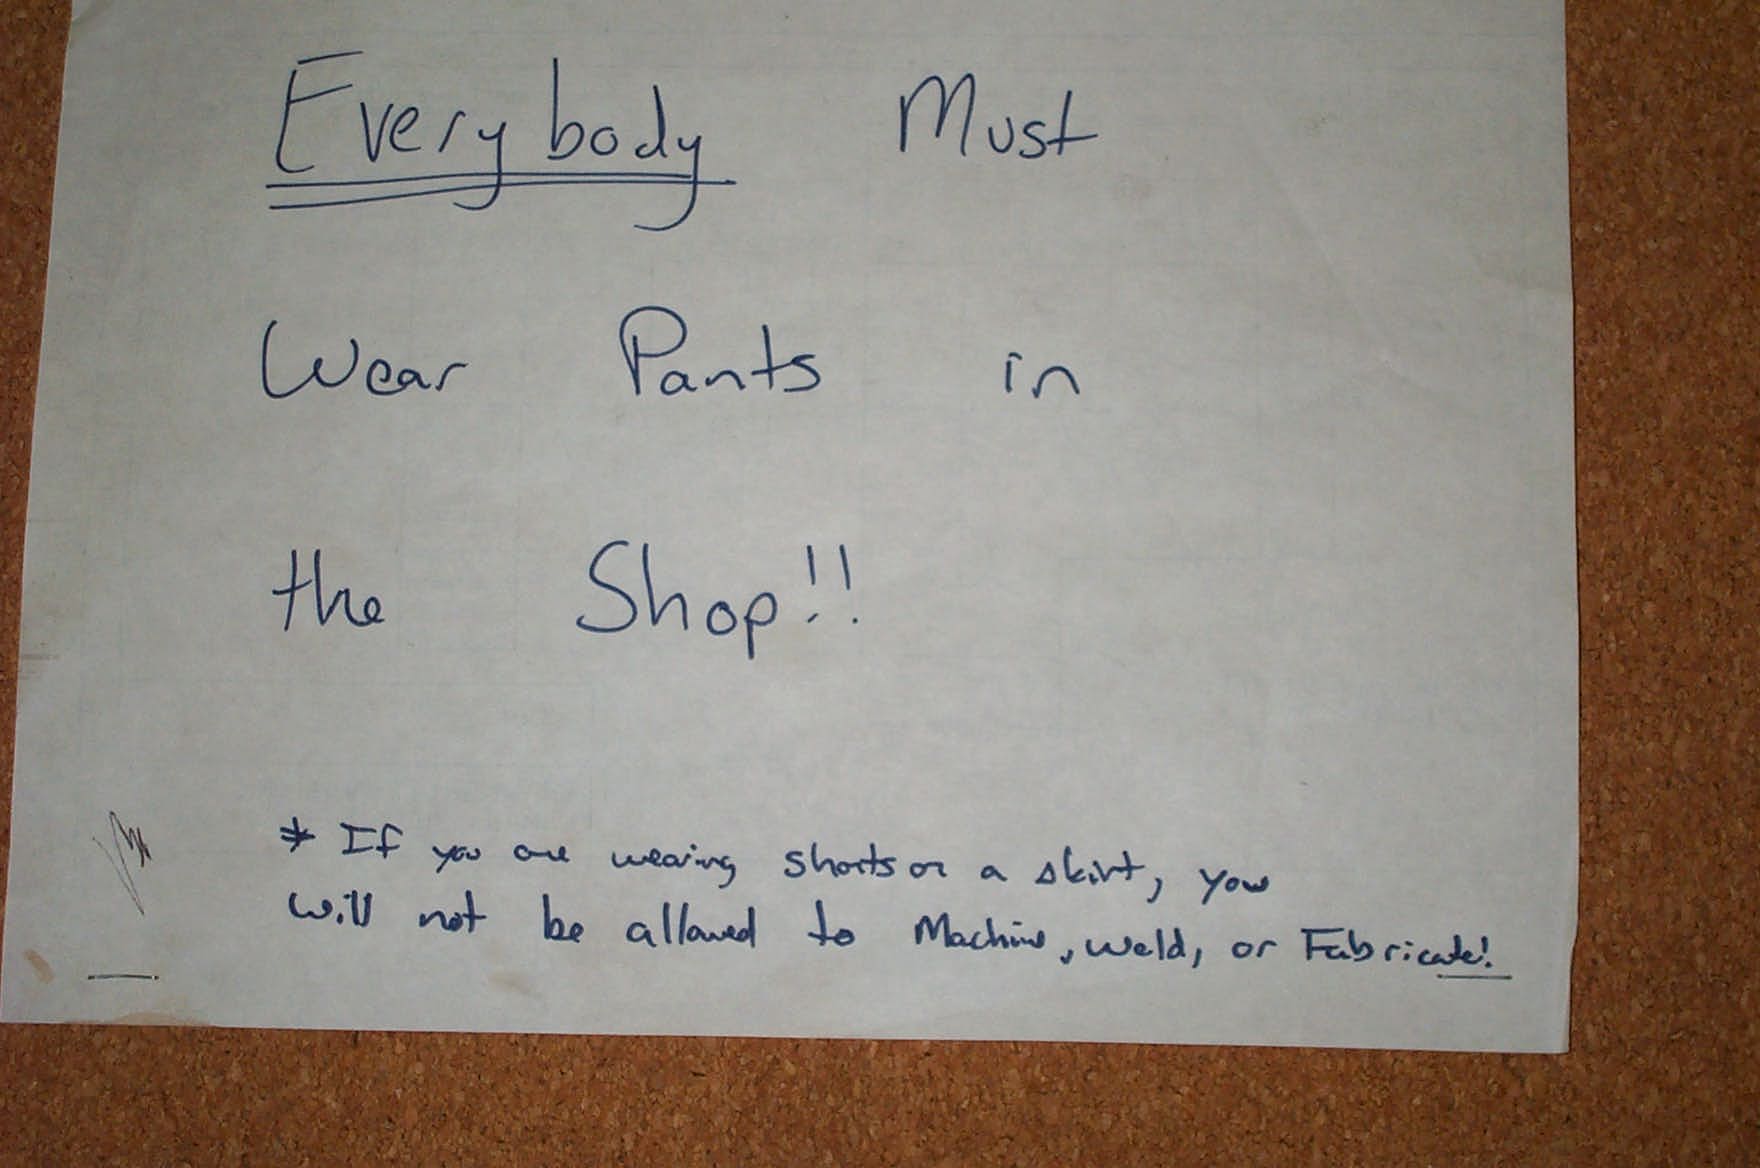 Everybody Must
Wear Pants in
the Shop!!
* If you are wearing shorts or a skirt, you
will not be allowed to Machine, weld, or Fabricate!